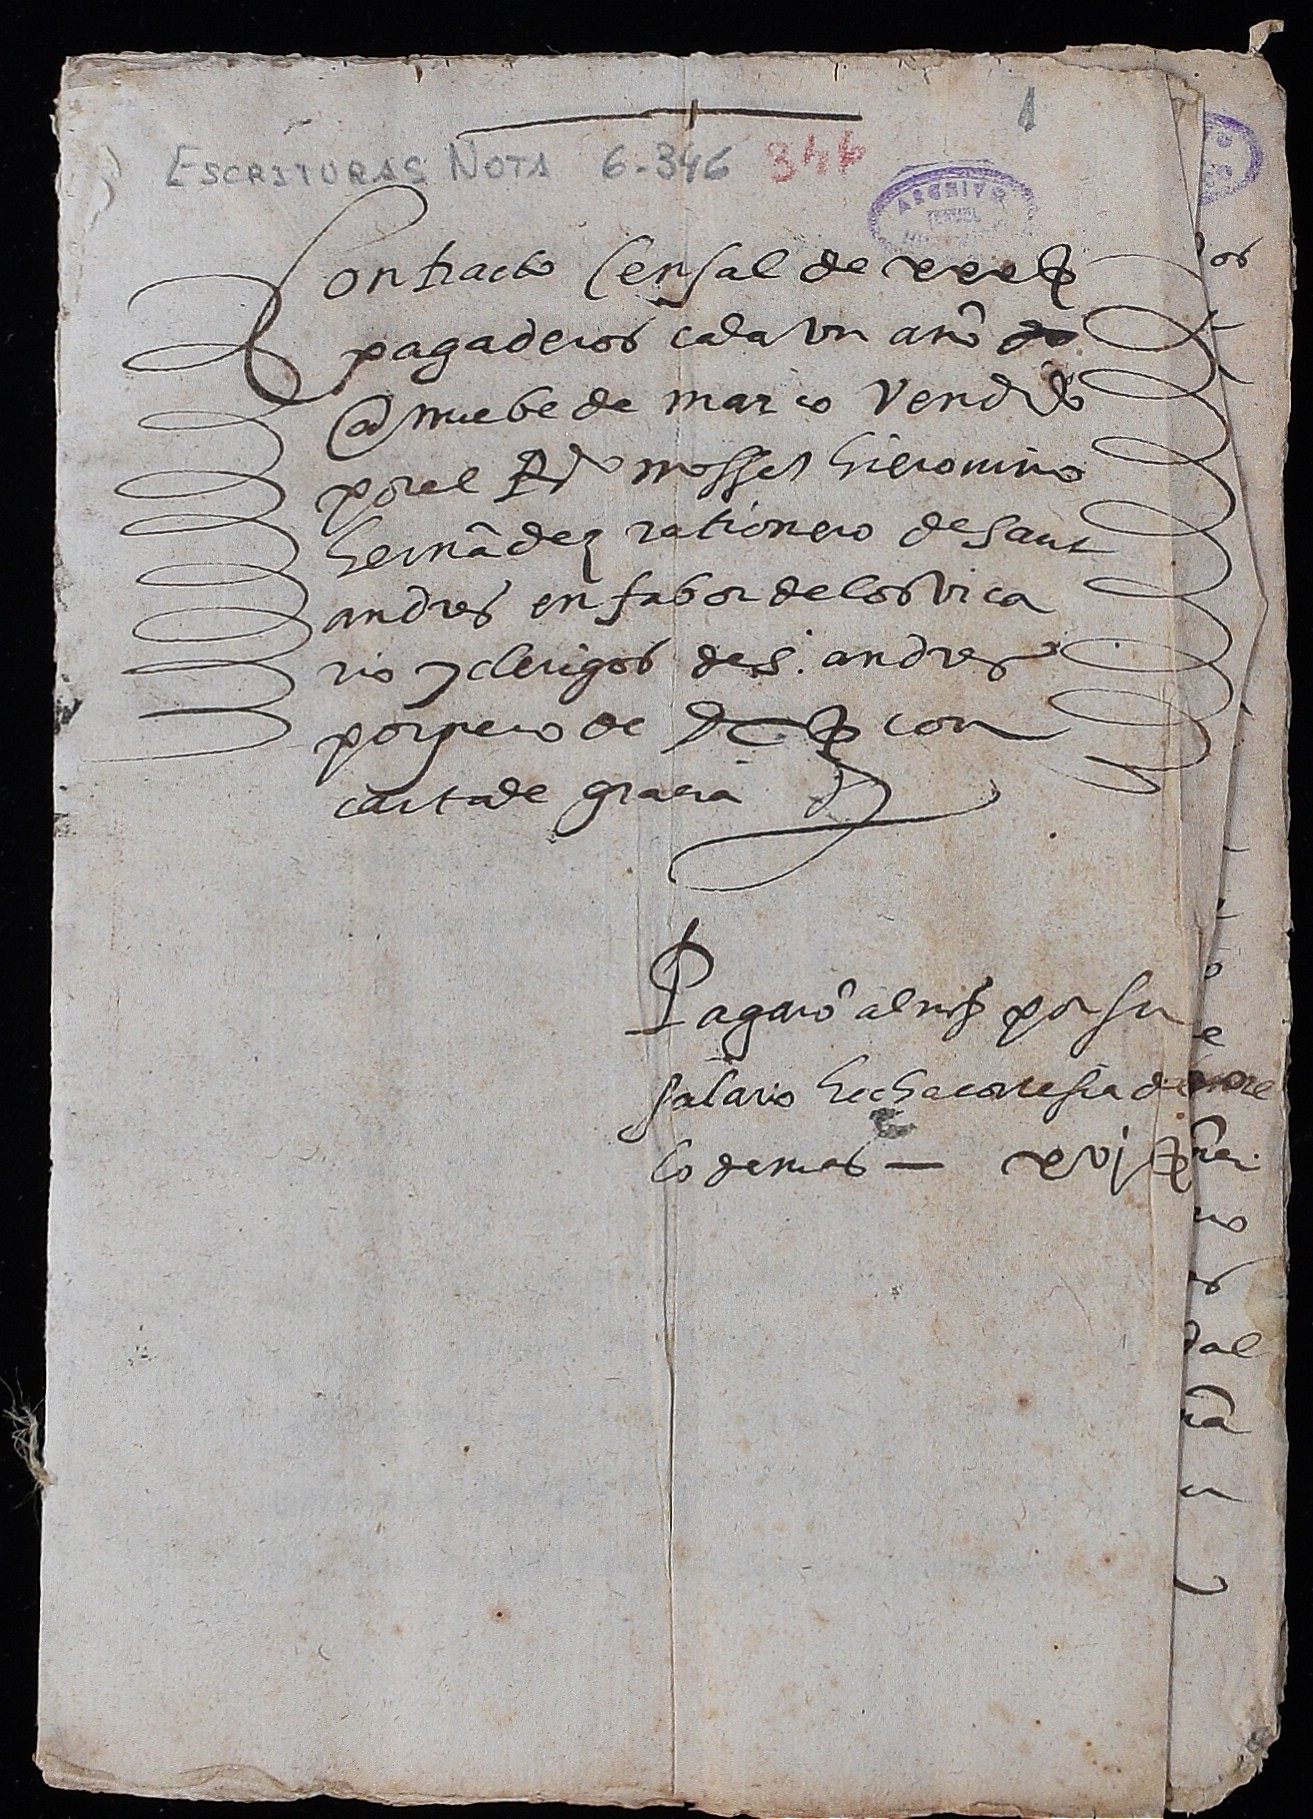 1
ESCRITURAS NOTA 6-346 344
ARCHIVO
TERUEL
Contracto Censal de xxx ss
pagaderos cada un año
a nuebe de março Vendido
por el Rdo mossen hieronimo
hernãdez rationero de sant
andres en fabor de los vica
rio y clerigos de s. andres
por precio de dc ss con
carta de gracia
Pagarõ al noto por su
salario hecha cortesia de
lo demas — xvj ss